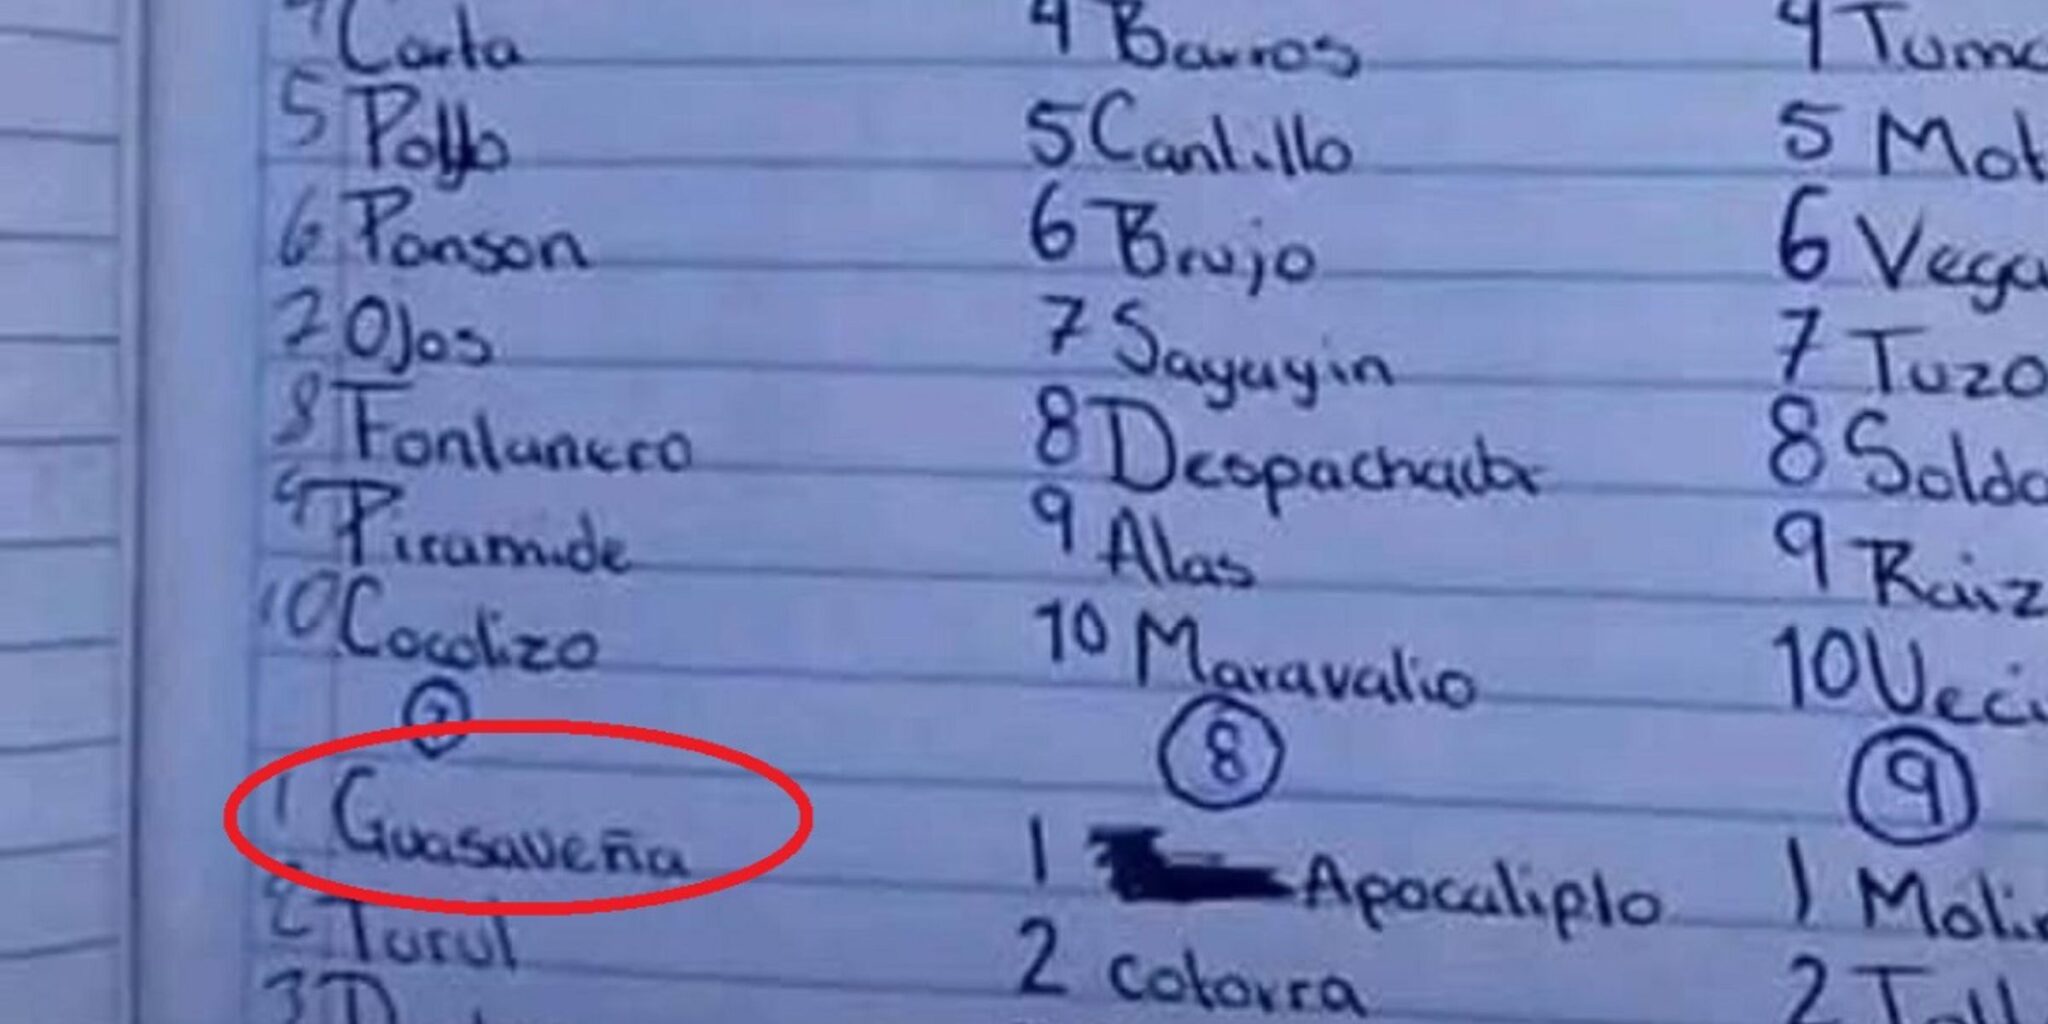 4 Carta
5 Pollo
6 Ponson
7 Ojos
8 Fontanero
9 Piramide
10 Cocolizo
7
1 Guasaveña
2 Turul
3
4 Barros
5 Cantillo
6 Brujo
7 Sayayin
8 Despachador
9 Alas
10 Maravalio
8
1 Apocalipto
2 cotorra
4
5
6 Vega
7 Tuzo
8
9 Raiz
10
9
1
2